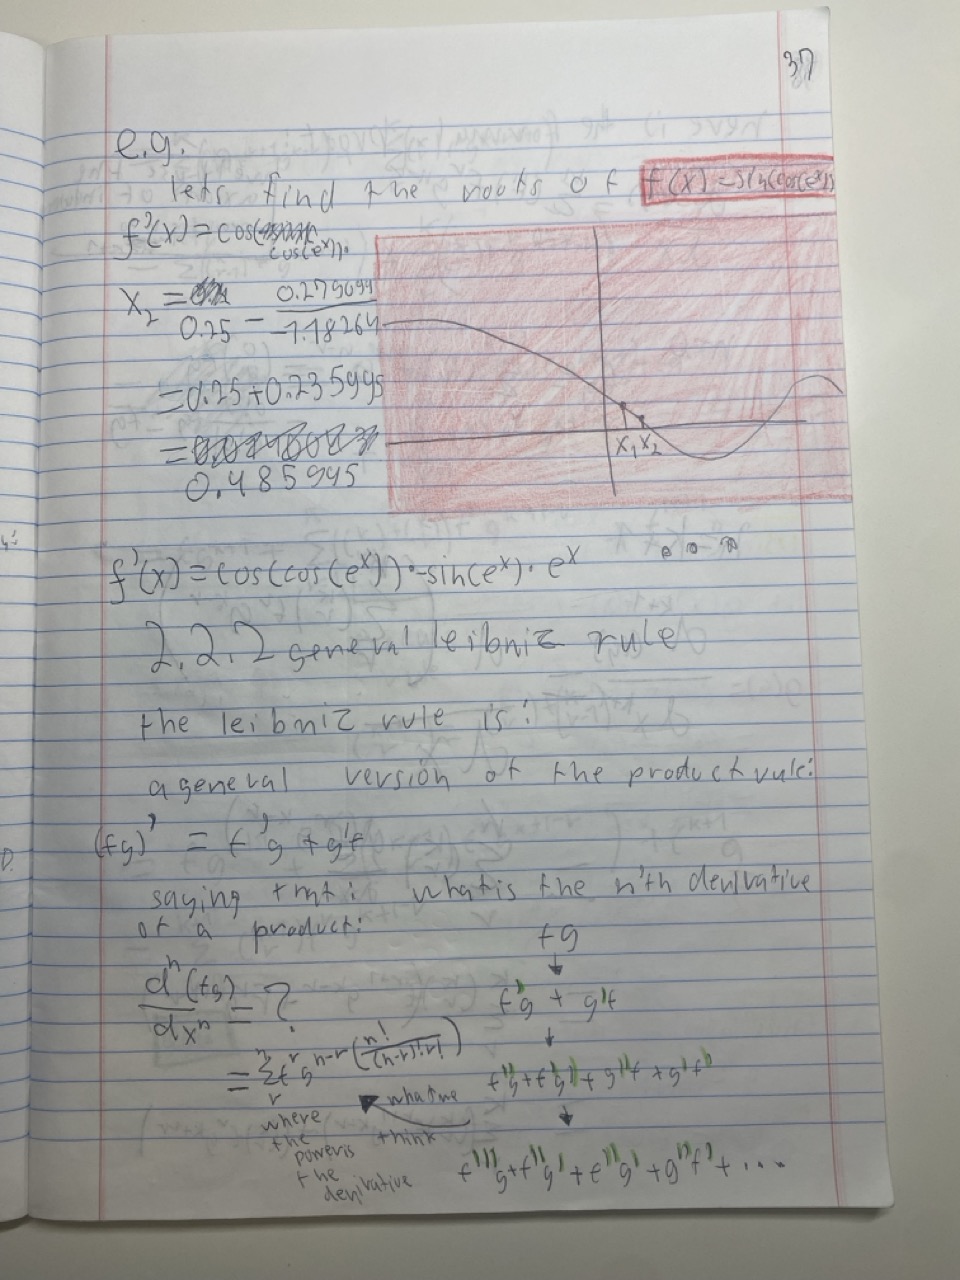 37
e.g.
lets find the roots of f(x)=sin(cos(e^x))
f'(x)=cos(
cos(e^x)).
x₂ = 0.25 - 0.279099/-1.18264
=0.25+0.235995
=
0.485995
x₁ x₂
f'(x)=cos(cos(e^x))·-sin(e^x)·e^x
2.2.2 general leibniz rule
the leibniz rule is:
a general version of the product rule:
(fg)' = f'g + g'f
saying tmt: what is the n'th derivative
of a product:
fg
d^n(fg)/dx^n = ?
f'g + g'f
= Σ_r^n f^r g^n-r (n!/(n-r)!r!)
f''g+f'g'+g''f+g'f'
what we
think
where
the
power is
the
derivative
f'''g+f''g'+f''g'+g''f'+....